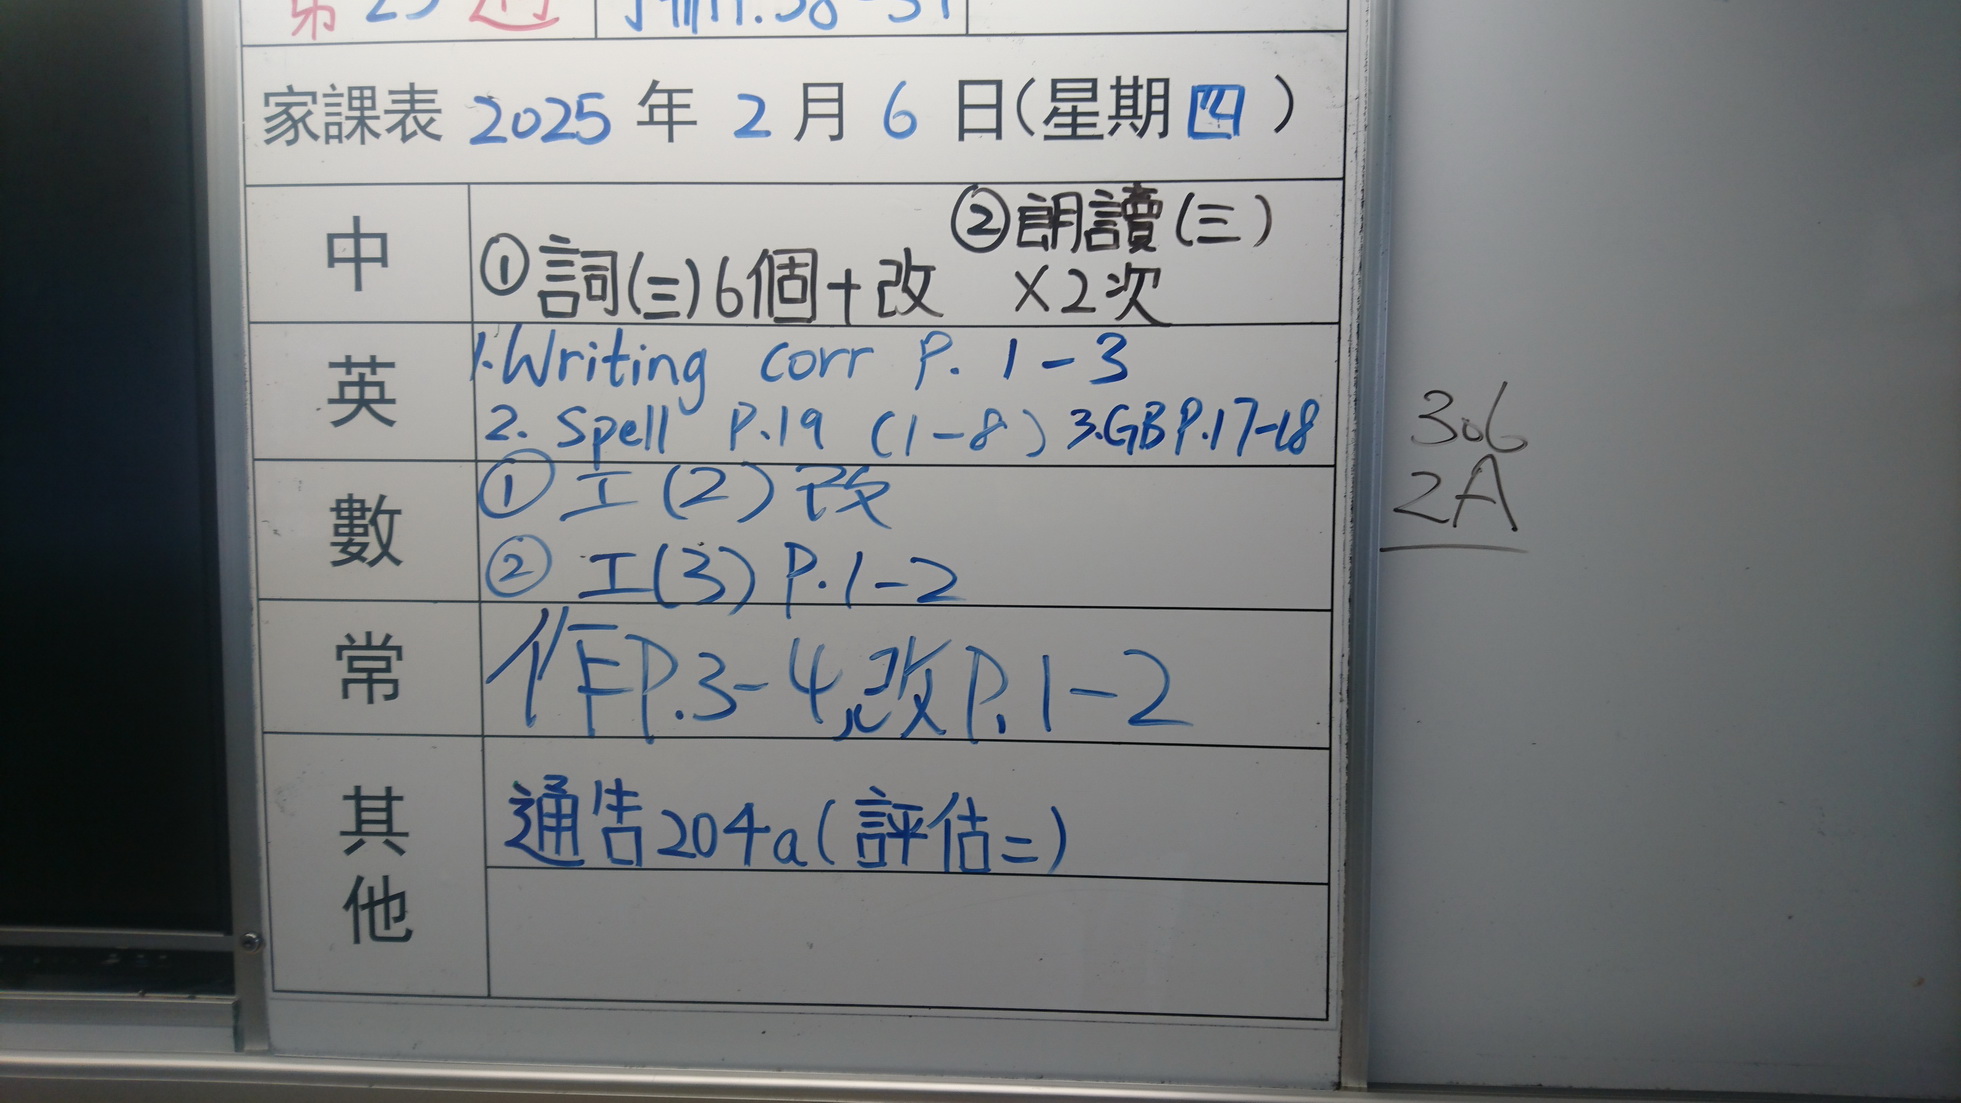 第 25 週
家課表 2025 年 2 月 6 日(星期四)
中
②朗讀(三)
①詞(三)6個+改 ×2次
英
1.Writing corr P. 1-3
2. Spell P.19 (1-8) 3.GB P.17-18
數
① 工(2)改
② 工(3) P.1-2
常
作P.3-4,改P.1-2
其他
通告204a(評估二)
306
2A